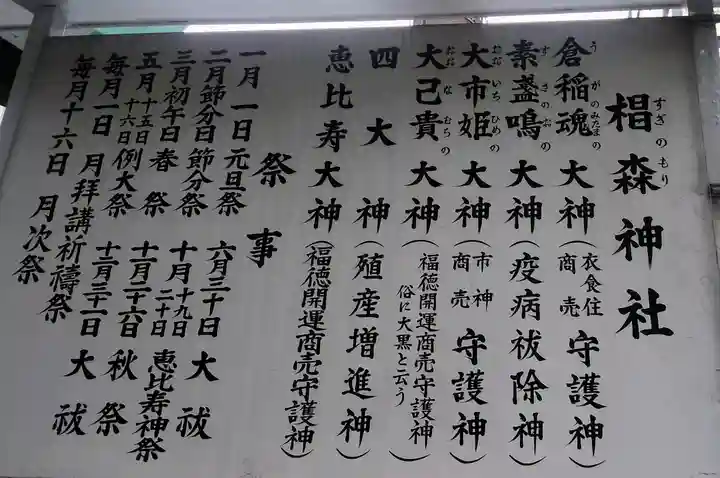 椙森神社
すぎのもり
倉稲魂大神（衣食住商売守護神）
うがのみたまの
素盞鳴大神（疫病祓除神）
すさのおの
大市姫大神（市神商売守護神）
おおいちひめの
大己貴大神（福徳開運商売守護神俗に大黒と云う）
おおなむちの
四大神（殖産増進神）
恵比寿大神（福徳開運商売守護神）
祭事
一月一日元旦祭
二月節分日節分祭
三月初午日春祭
五月十五日十六日例大祭
毎月一日月拝講祈禱祭
毎月十六日月次祭
六月三十日大祓
十月十九日二十日恵比寿神祭
十一月二十六日秋祭
十二月三十一日大祓